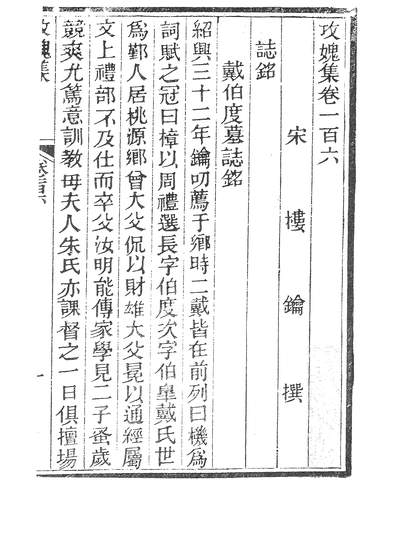 攻媿集卷一百六
宋樓鑰撰
誌銘
戴伯度墓誌銘
紹興三十二年鑰叨薦于鄉時二戴皆在前列曰機爲
詞賦之冠曰樟以周禮選長字伯度次字伯皐戴氏世
爲鄞人居桃源鄉曾大父侃以財雄大父冕以通經屬
文上禮部不及仕而卒父汝明能傳家學見二子蚤歲
競爽尤篤意訓敎毋夫人朱氏亦課督之一日俱擅場
攻媿集
卷一百六
一